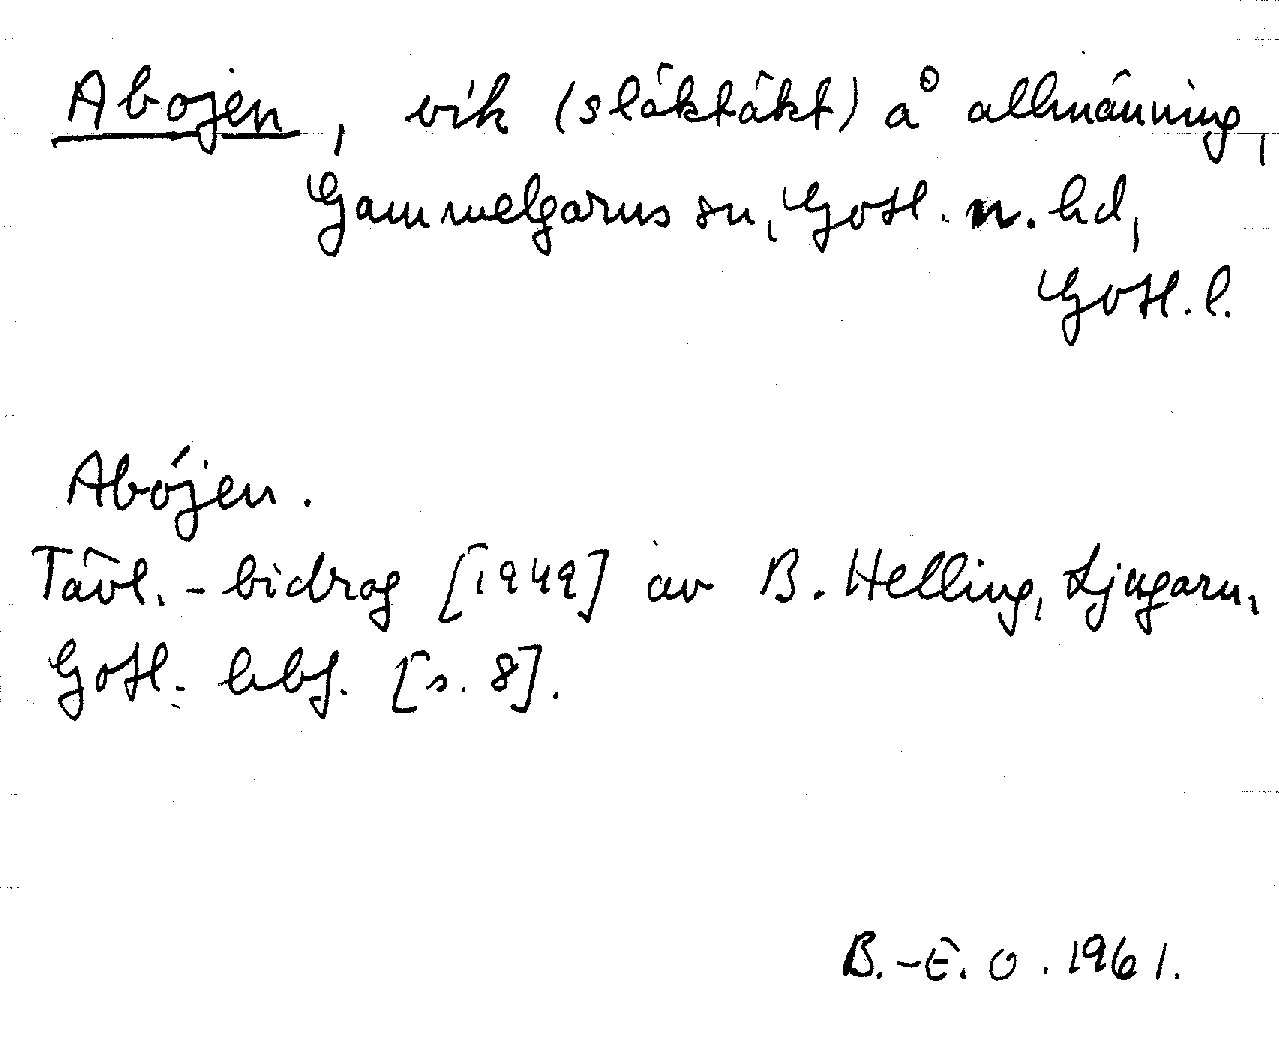 Abojen, vik (släktäkt) å allmänning,
Gammelgarns sn, Gotl. n. hd,
Gotl. l.
Abójen.
Tävl.-bidrag [1949] av B. Helling, Ljugarn,
Gotl. hbf. [s. 8].
B.-E. O. 1961.